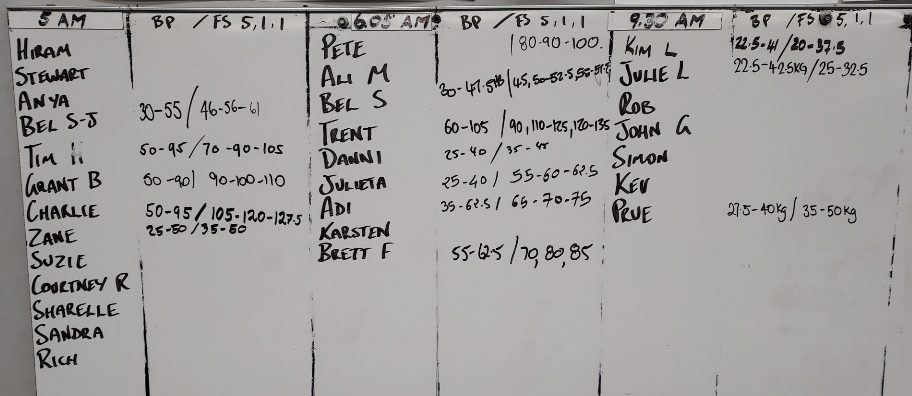 5 AM BP / FS 5,1,1
HIRAM
STEWART
ANYA
BEL S-J 30-55 / 46-56-61
TIM H 50-95 / 70-90-105
GRANT B 50-90 / 90-100-110
CHARLIE 50-95 / 105-120-127.5
ZANE 25-50 / 35-50
SUZIE
COURTNEY R
SHARELLE
SANDRA
RICH
6.05 AM BP / FS 5,1,1
PETE / 80-90-100.
ALI M 30-47.5 / 45, 50-52.5,
BEL S
TRENT 60-105 / 90, 110-125, 120-135
DANNI 25-40 / 35-45
JULIETA 25-40 / 55-60-62.5
ADI 35-62.5 / 65-70-75
KARSTEN
BRETT F 55-62.5 / 70, 80, 85
9.30 AM BP / FS 5,1,1
KIM L 22.5-41 / 20-37.5
JULIE L 22.5-42.5KG / 25-32.5
ROB
JOHN G
SIMON
KEV
PRUE 27.5-40kg / 35-50kg